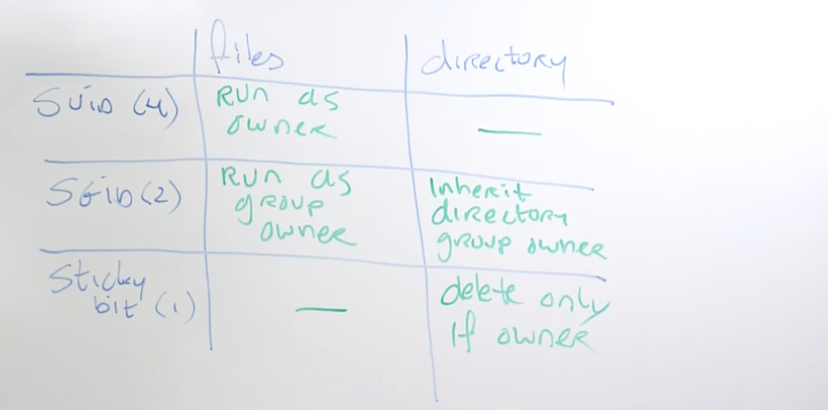 files directory
SUID (4) Run as owner —
SGID (2) Run as group owner Inherit directory group owner
Sticky bit (1) — delete only if owner